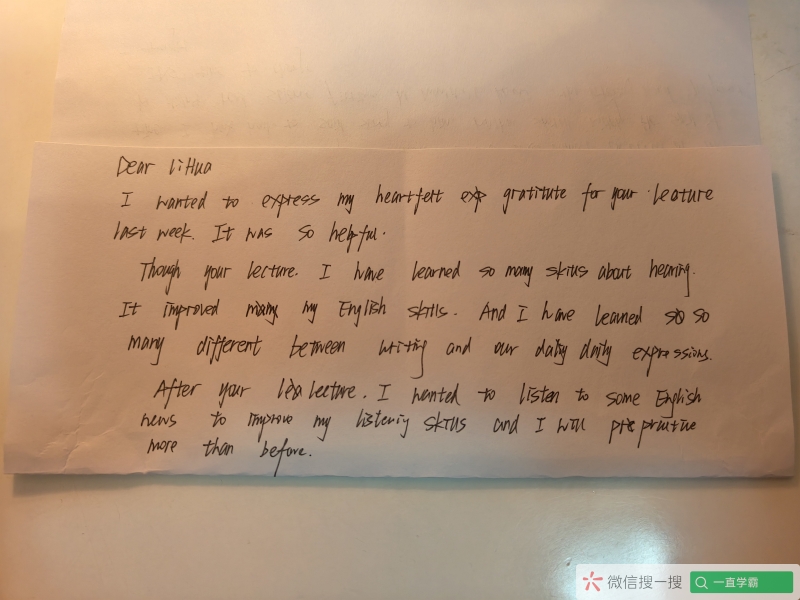 Dear LiHua
I wanted to express my heartfelt exp gratitute for your leature
last week. It was so helpful.
Though your lecture. I have learned so many skills about hearing.
It improved many my English skills. And I have learned so so
many different between writing and our daliy daily expressions.
After your lea lecture. I wanted to listen to some English
news to improve my listeniy skills and I will pra practice
more than before.
微信搜一搜
一直学霸